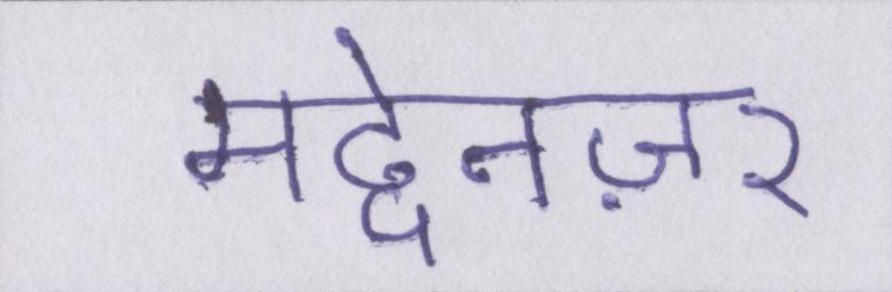 मद्देनज़र